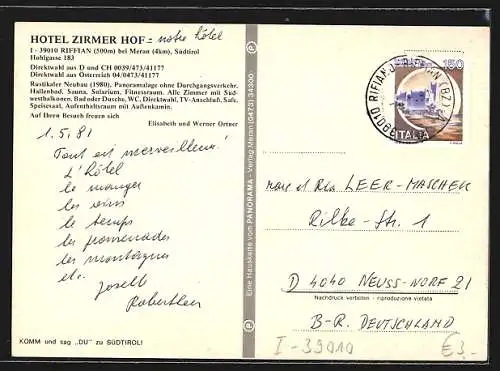 HOTEL ZIRMER HOF = notre hôtel
I - 39010 RIFFIAN (500m) bei Meran (4km), Südtirol
Hohlgasse 183
Direktwahl aus D und CH 0039/473/41177
Direktwahl aus Österreich 04/0473/41177
Rustikaler Neubau (1980), Panoramalage ohne Durchgangsverkehr.
Hallenbad, Sauna, Solarium, Fitnessraum. Alle Zimmer mit Süd-
westbalkonen, Bad oder Dusche, WC, Direktwahl, TV-Anschluß, Safe,
Speisesaal, Aufenthaltsraum mit Außenkamin.
Auf Ihren Besuch freuen sich
Elisabeth und Werner Ortner
1.5.81
Tout est merveilleux!
L'hôtel
le manger
les vins
le temps
les promenades
les montagnes
etc.
KOMM und sag „DU" zu SÜDTIROL!
Eine Hauskarte vom PANORAMA - Verlag Meran (0473) 34300
150
ITALIA
39010 RIFIANO-RIFFIAN (BZ)
LEER-MASCHEK
Rilke-Str. 1
D 4040 NEUSS-NORF 21
Nachdruck verboten - riproduzione vietata
B-R. DEUTSCHLAND
I-39010
€3.-